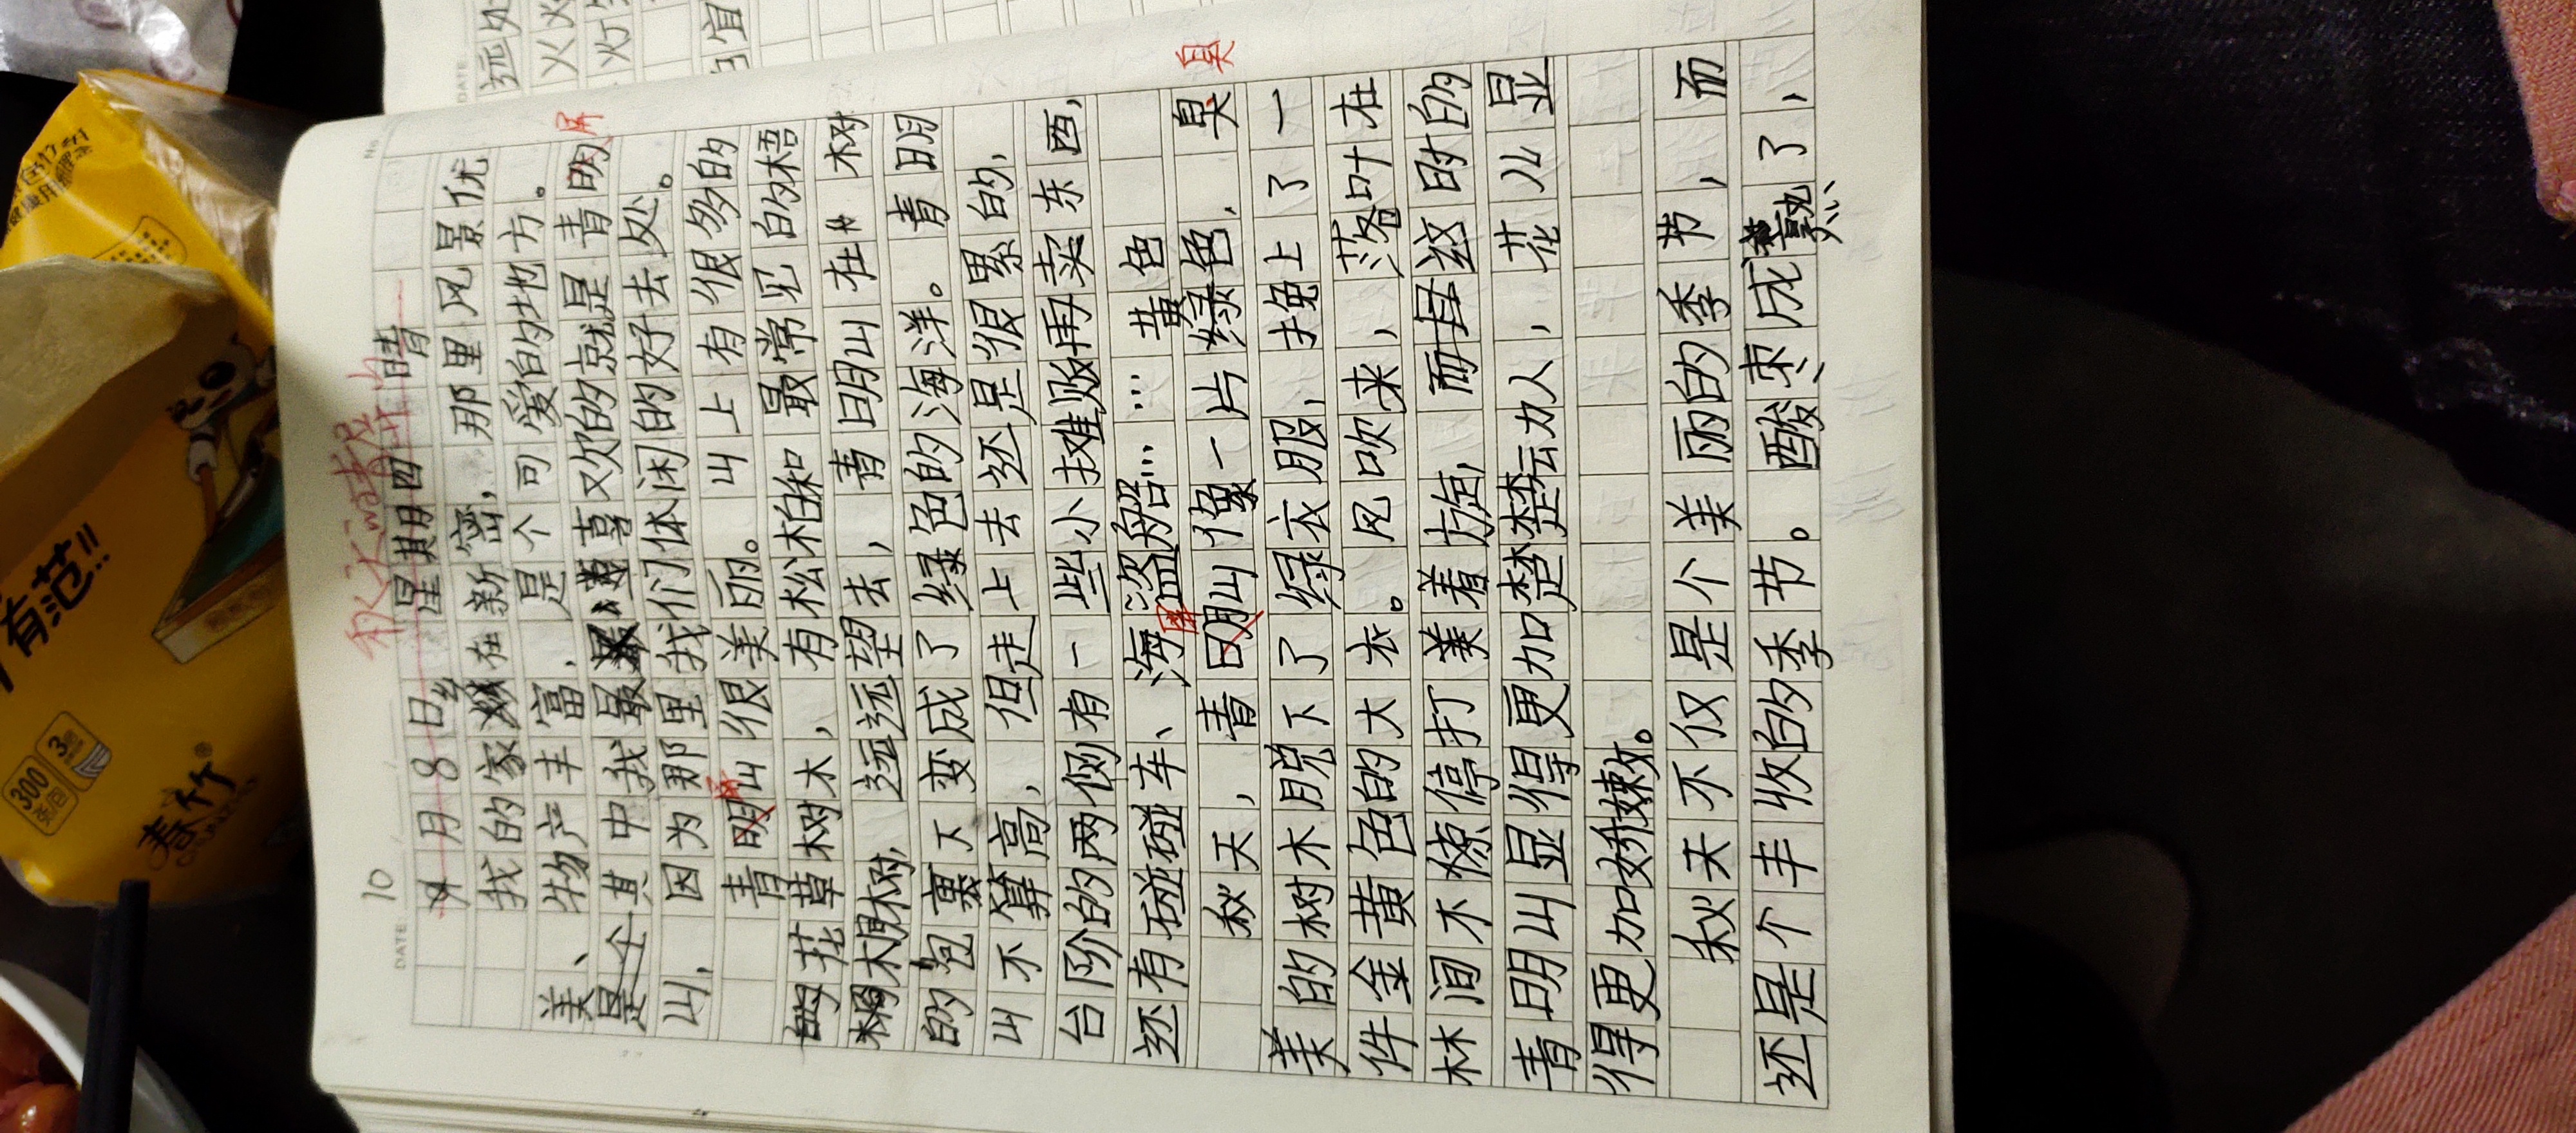 DATE 10
No
月8日 星期四 晴
我的家乡在新密，那里风景优
美、物产丰富，是个可爱的地方。
是一个其中我最喜欢的就是青明屏
山，因为那里我们休闲的好去处。
青明屏山很美丽。山上有很多的
的花草树木，有松柏和最常见的梧
桐树，远远望去，青明山在树
的包裹下变成了绿色的海洋。青明
山不算高，但走上去还是很累的，
台阶的两侧有一些小摊贩再卖东西，
还有碰碰车、海盗船……黄色
秋天，青明屏山像一片绿色，臭
美的树木脱下了绿衣服，换上了一
件金黄色的大衣。风吹来，落叶在
林间不停打着旋，而且这时的
青明山显得更加楚楚动人，花儿显
得更加娇嫩。
秋天不仅是个美丽的季节，而
还是个丰收的季节。酸枣成熟了，
有范!!
300
张/包
3层
春竹®
CHUNZHU
DATE